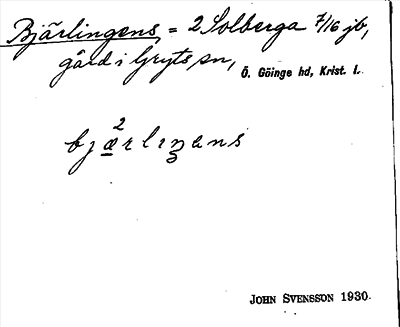 Bjärlingens = 2 Solberga 7/16 jb,
gård i Gryts sn, Ö. Göinge hd, Krist. l.
bjæ²rlıŋens
JOHN SVENSSON 1930.